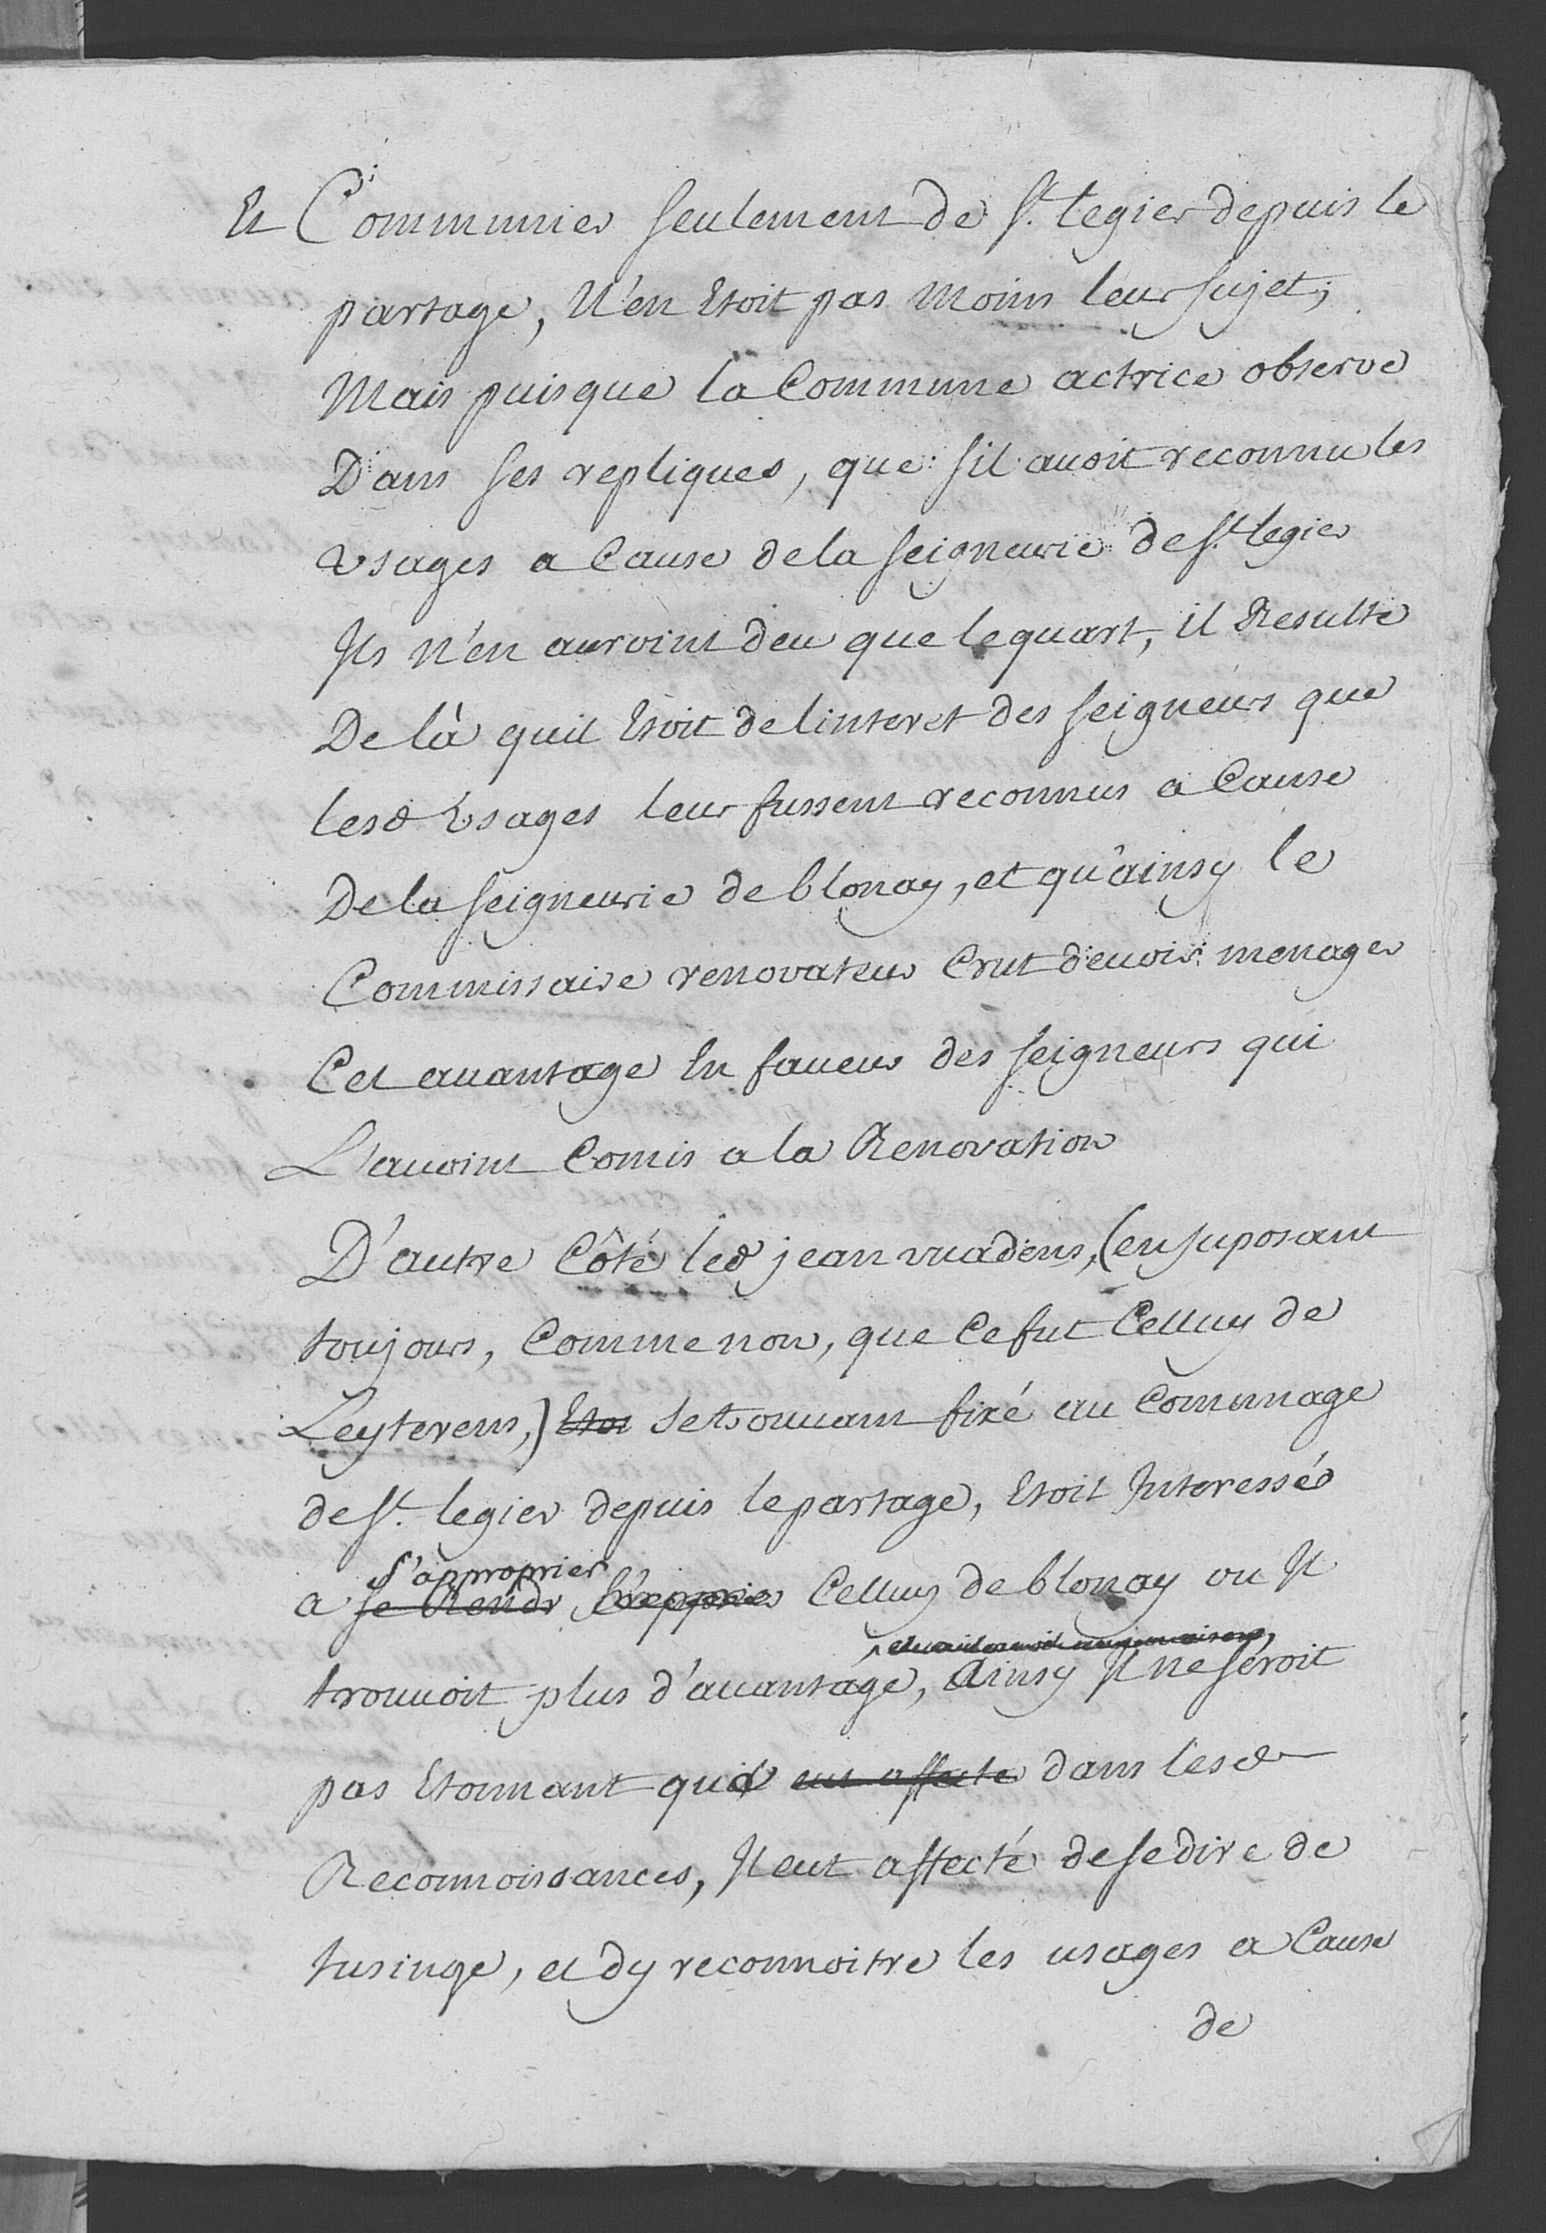 Et Communier seulement de St. legier depuis le
partage, N'en Etoit pas moins leur sujet;
Mais puisque la Commune actrice observe
Dans ses repliques, que s'il avoit reconnu les
Usages a Cause de la seigneurie de St. legier
Ils n'en auroint deu que le quart, il Resulte
De là quil Etoit de linteret des seigneurs que
lesd. Usages leur fussent reconnus a Cause
De la seigneurie de blonay, et qu'ainsy le
Commissaire renovateur Crut devoir menager
Cet avantage En faveur des seigneurs qui
L'avoint Comis a la Renovation
D'autre Côté led. jean vuadens, (en suposant
toujours, Comme non, que Ce fut Celluy de
Leyterens,) Etoi se trouvant fixé au Comunage
de St. legier depuis le partage, Etoit Interessé
s'approprier
a se Rendr Celluy de blonay ou Il
trouvoit plus d'avantage, Ainsy Il ne seroit
pas Etonnant que eut affecté dans lesd.
Reconnoissances, Il eut affecté de se dire de
tusinge, et dy reconnoitre les usages a Cause
de